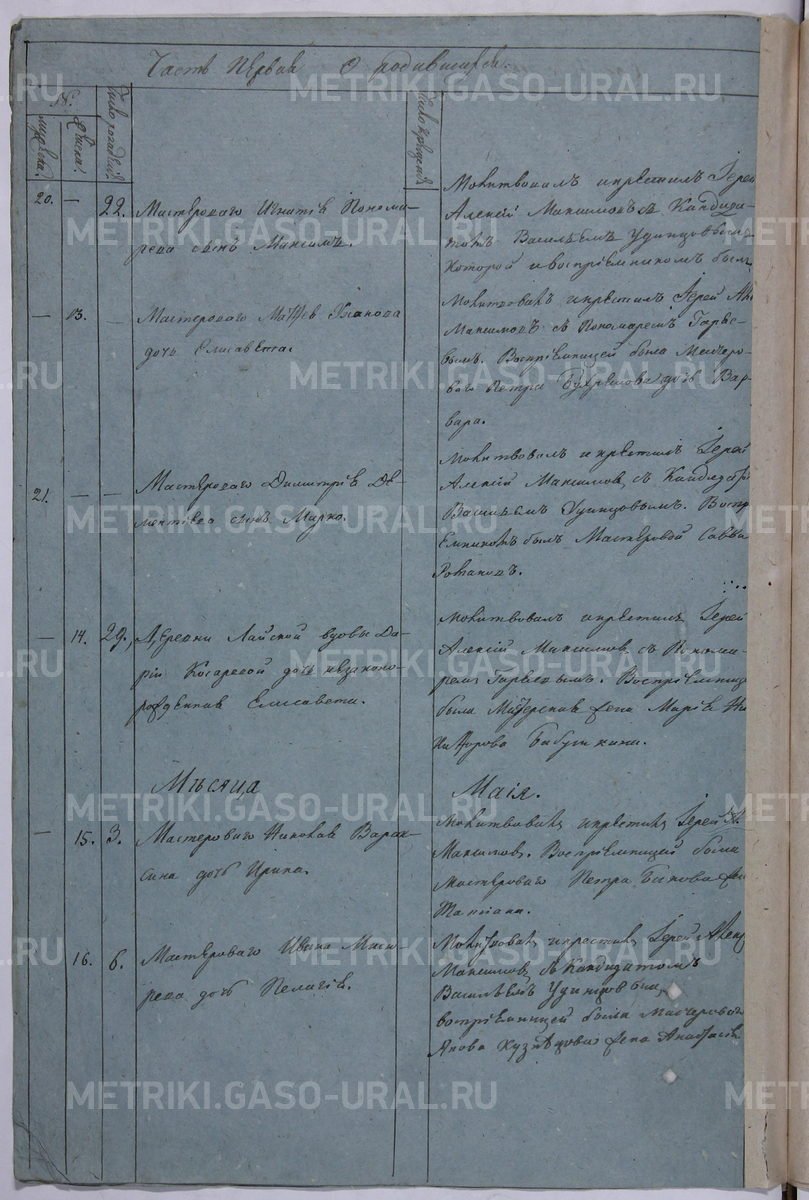 Часть первая О родившихся.
№.
мужеска.
женска.
Число рождения
Число крещения
20. — 22. Мастероваго Игнатія Понома-
рева сынъ Максимъ.
Молитвовалъ и крестилъ Іерей
Алексій Максимовъ съ Кандида-
томъ Васильемъ Удинцовымъ
которой и воспріемникомъ былъ
— 13. — Мастероваго Матѳея
дочь Елисавета.
Молитвовалъ и крестилъ Іерей Але
Максимовъ съ Пономаремъ Гарье-
вымъ. Воспріемницей была Мастеро-
ваго Петра дочь Вар-
вара.
21. — — Мастероваго Димитрія Де-
ментьева сынъ Марко.
Молитвовалъ и крестилъ Іерей
Алексій Максимов, съ Кандидато
Васильемъ Удинцовымъ. Воспр
емникомъ былъ Мастеровой Савва
— 14. 29. Деревни Лайской вдовы Да-
ріи Косаревой дочь незаконо-
рожденная Елисавета.
Молитвовалъ и крестилъ Іерей
Алексій Максимов, съ Понома-
ремъ Гарьевымъ. Воспріемница
была жена Марія Ни
Бабушкина.
Мѣсяца Маія.
— 15. 3. Мастероваго Николая Варак-
сина дочь Ирина.
Молитвовалъ и крестилъ Іерей А.
Максимов. Воспріемницей была
мастероваго Петра Быкова жен
Татіана.
16. 6. Мастероваго Ивана
рева дочь Пелагія.
Молитвовалъ и крестилъ Іерей Алекс
Максимов, съ Кандидатомъ
Васильемъ Удинцовым,
воспріемницей была Мастероваго
Якова Кузнецова жена Анастасія
METRIKI.GASO-URAL.RU